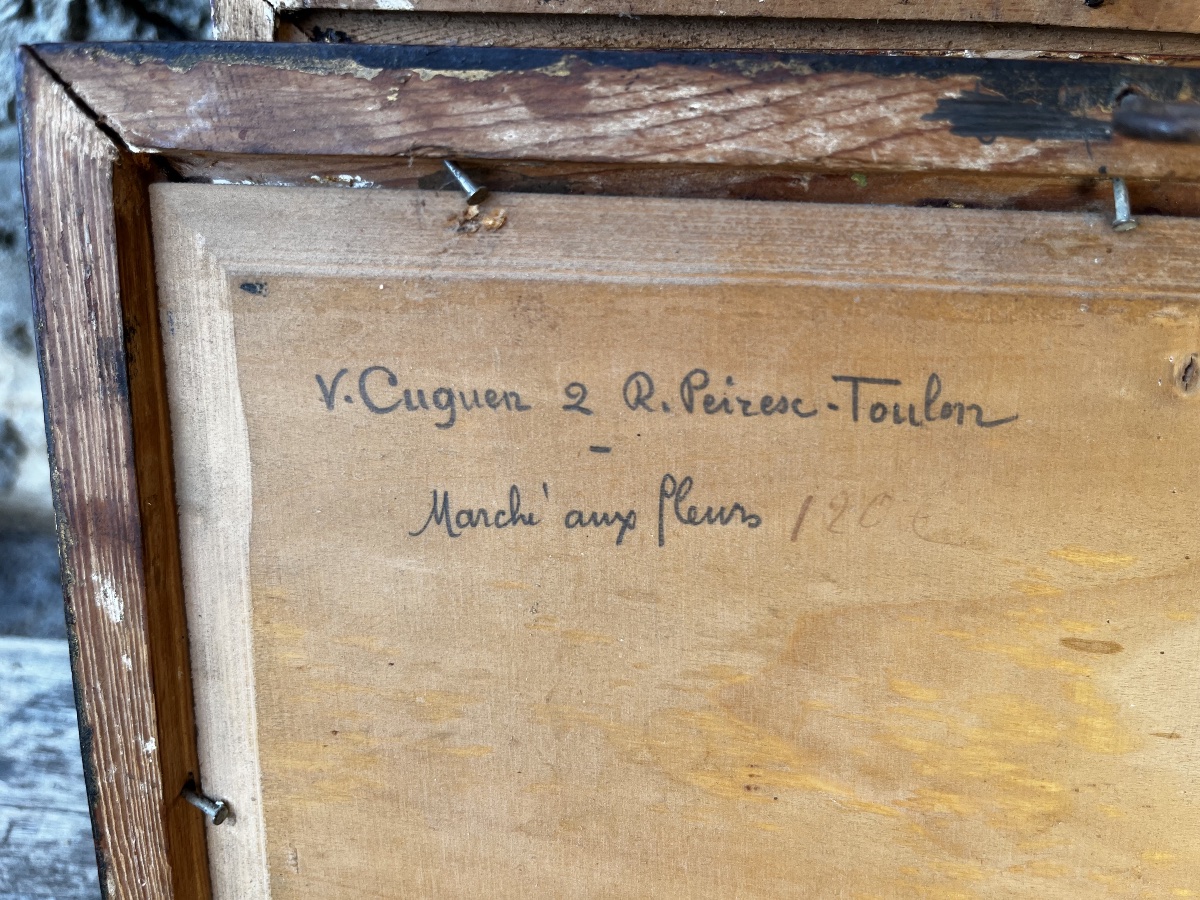 V. Cuguen 2 R. Peiresc - Toulon
-
Marché aux fleurs 120